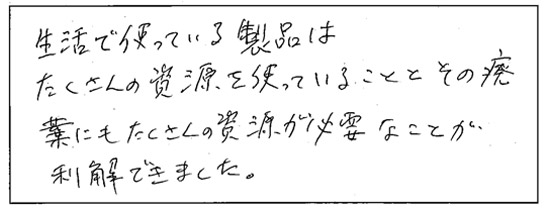 生活で使っている製品は
たくさんの資源を使っていることとその廃
棄にもたくさんの資源が必要なことが
利解できました。